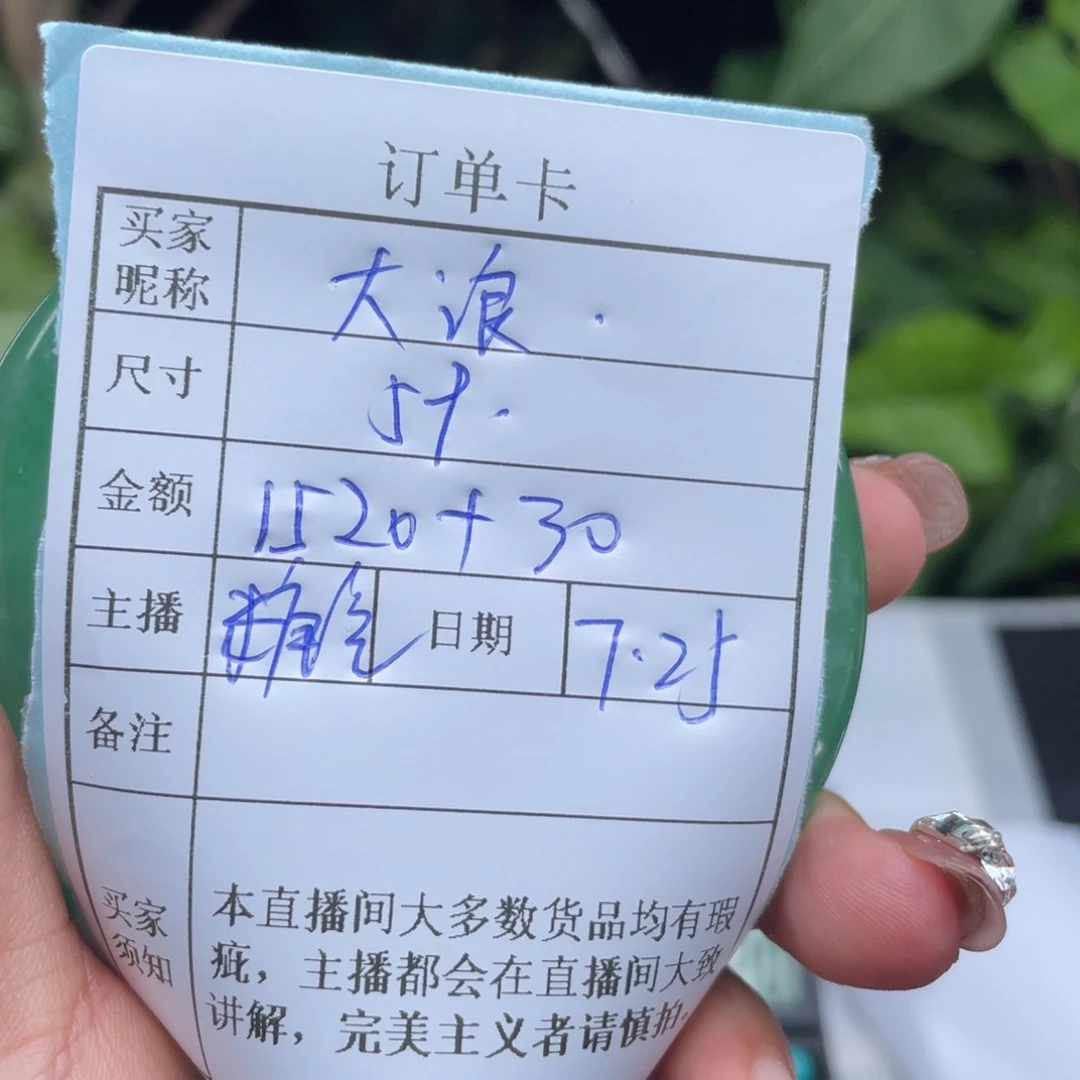 订单卡
买家昵称 大浪.
尺寸
金额 1520+30
主播 日期 7.25
备注
买家须知
本直播间大多数货品均有瑕
疵，主播都会在直播间大致
讲解，完美主义者请慎拍。